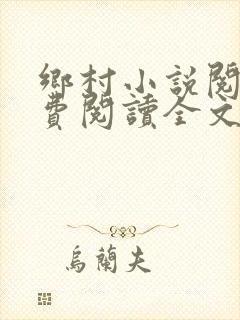 鄉村小説閱
費閱讀全文
烏蘭夫